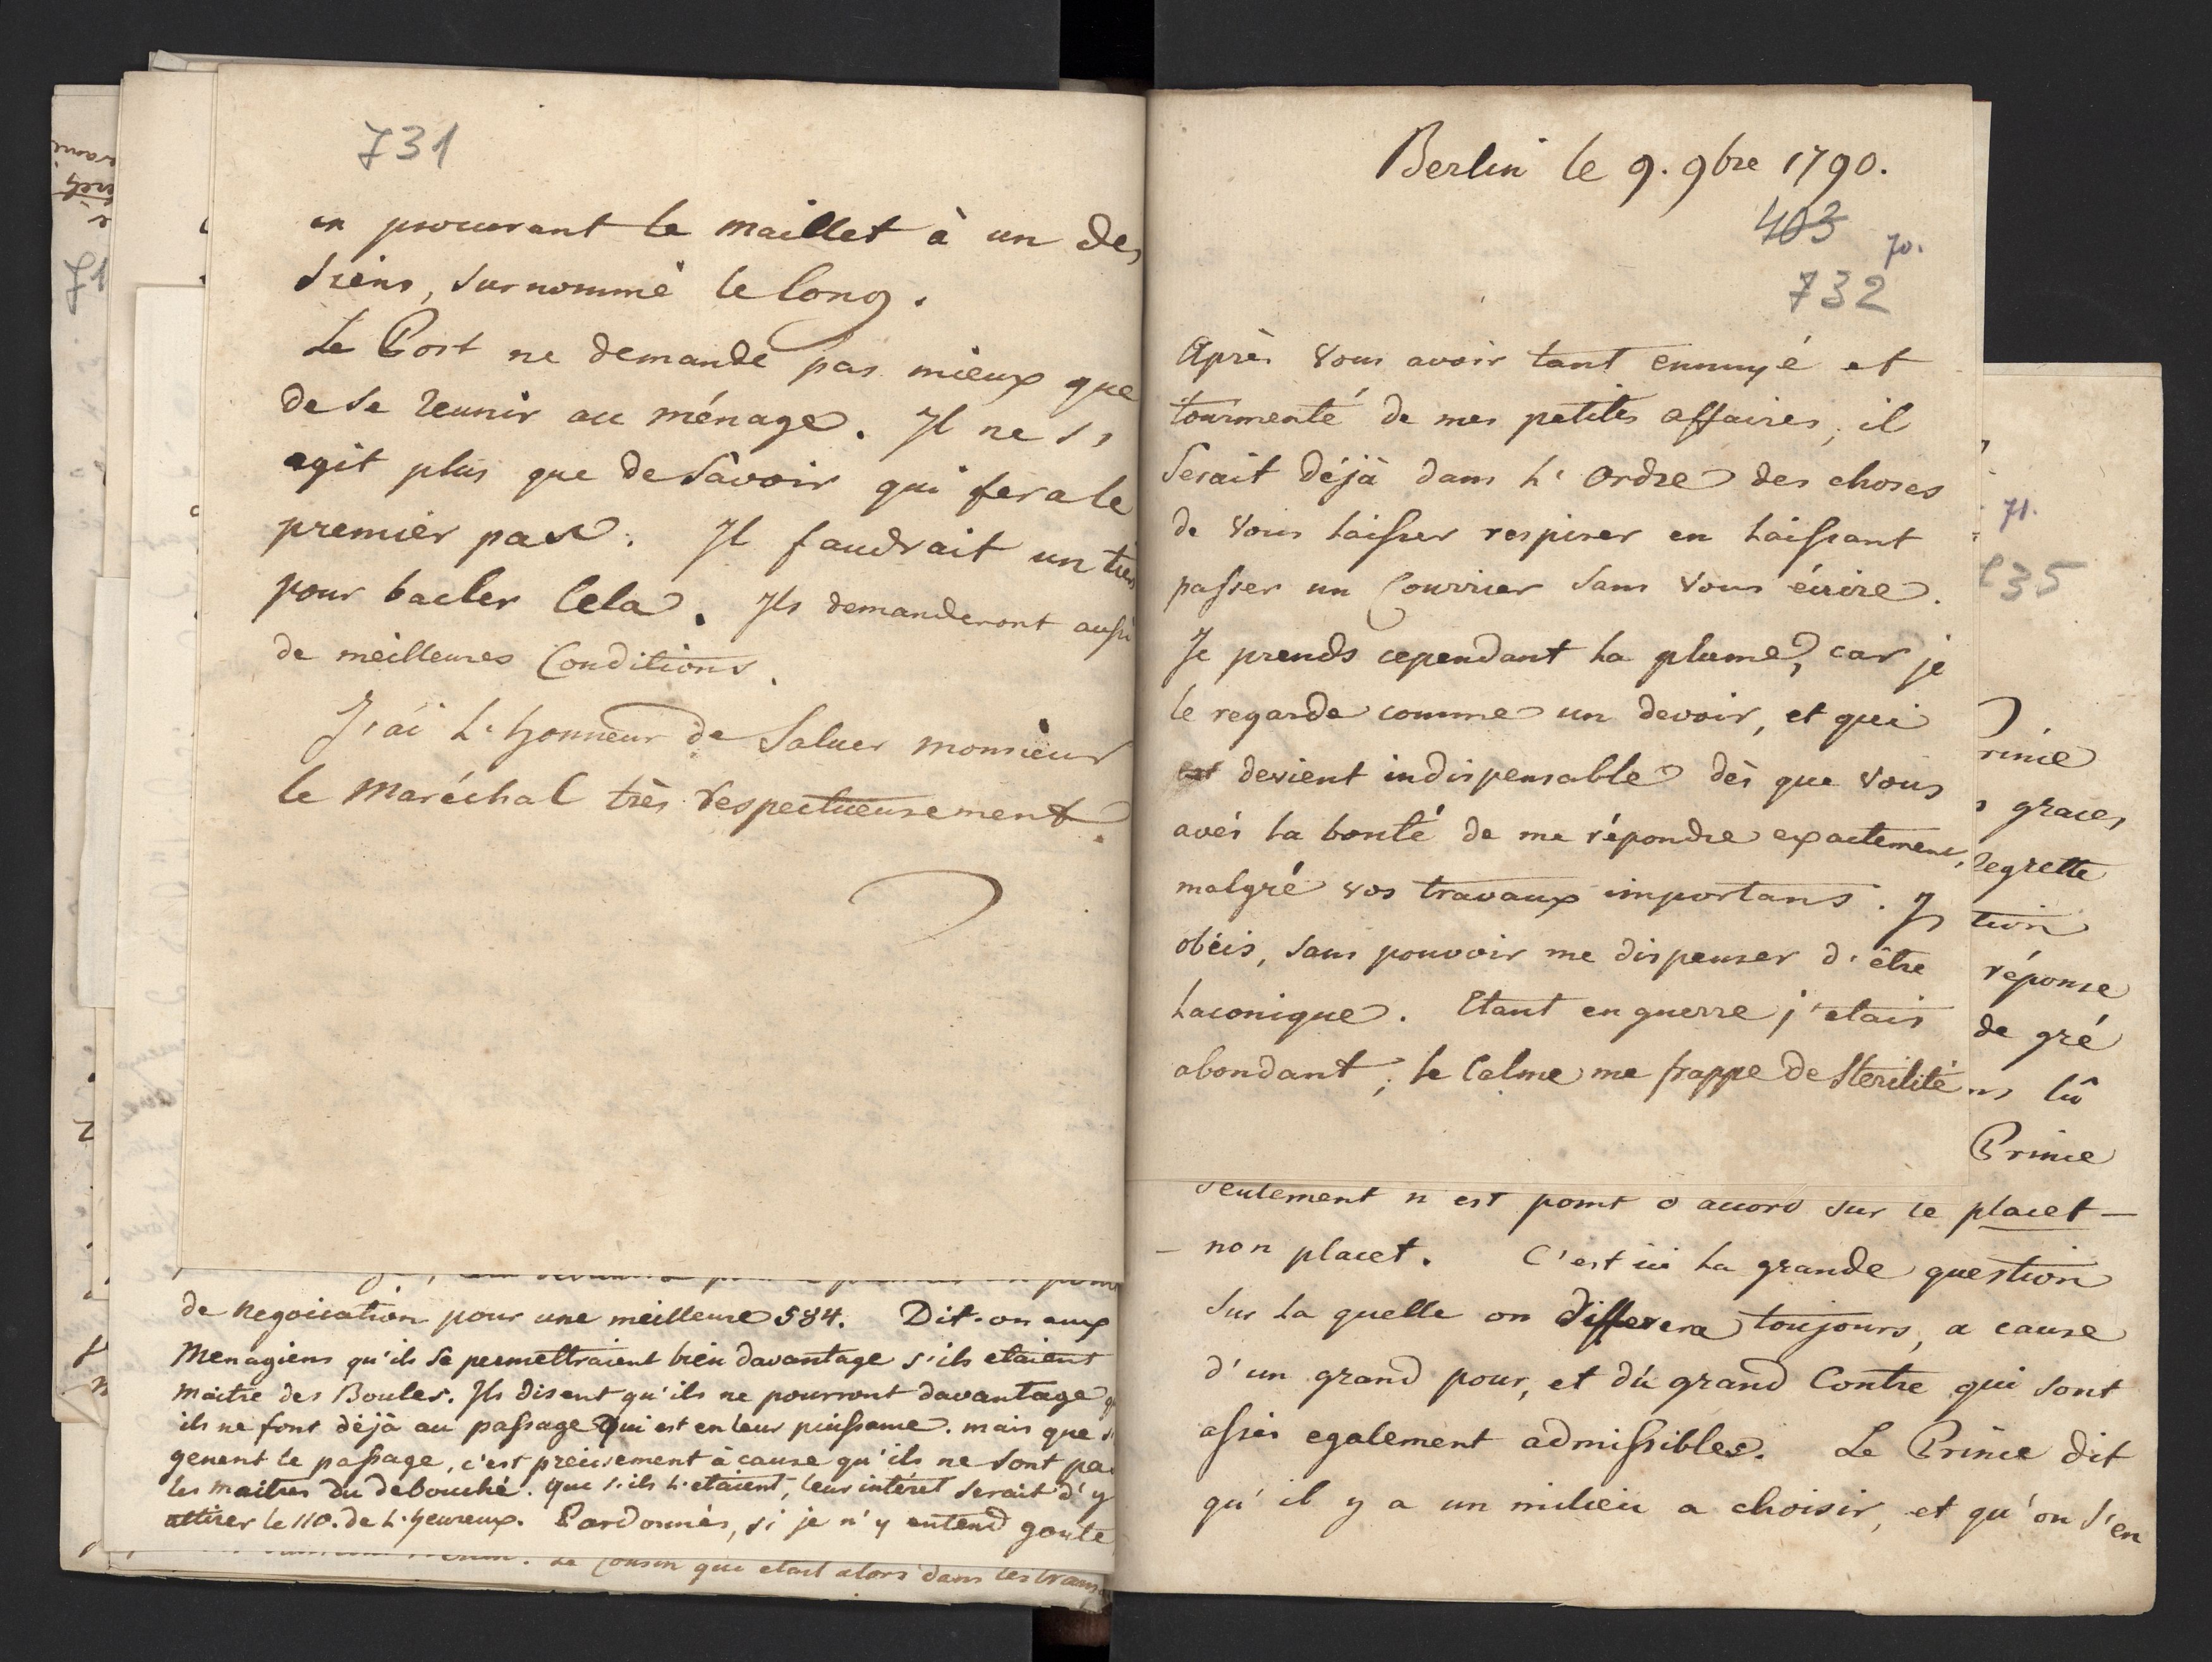 731
en procurant le maillet à un des
siens, surnommé le long.
Le Port ne demande pas mieux que
de se reunir au ménage. Il ne s'
agit plus que de savoir qui fera le
premier pas. Il faudrait un tiers
pour bacler cela. Ils demanderont aussi
de meilleures Conditions.
J'ai l'honneur de saluer monsieur
le Maréchal très respectueusement.
de negociation pour une meilleure 584. Dit-on aux
Menagiens qu'ils se permettraient bien davantage s'ils etaient
maitre des Boules. Ils disent qu'ils ne pourront davantage
ils ne font dèjà au passage qui est en leur puissance. mais que
genent le passage, c'est precisement à cause qu'ils ne sont pa
les maitres du debouché. que s'ils l'etaient, leur intéret serait d'y
attirer le 110. de l'heureux. Pardonnés, si je n'y entend goute
Le Cousin qui etait alors dans les
Berlin le 9. 9bre 1790.
403
70.
732
Après vous avoir tant ennuyé et
tourmenté de mes petites affaires, il
serait déjà dans l'ordre des choses
de vous laisser respirer en laissant
passer un Courrier sans vous écrire.
Je prends cependant la plume, car je
le regarde comme un devoir, et qui
est devient indispensable dès que vous
avés la bonté de me répondre exactement,
malgré vos travaux importans. J'
obéis, sans pouvoir me dispenser d'être
laconique. Etant en guerre j'etais
abondant; le Calme me frappe de sterilité
seulement n'est point d'accord sur le placet —
— non placet. C'est ici la grande question
sur la quelle on differera toujours, a cause
d'un grand pour, et du grand Contre qui sont
assés egalement admissibles. Le Prince dit
qu'il y a un milieu a choisir, et qu'on s'en
71.
35
rince
graces
regrette
tion
réponse
de gré
lû
Prince